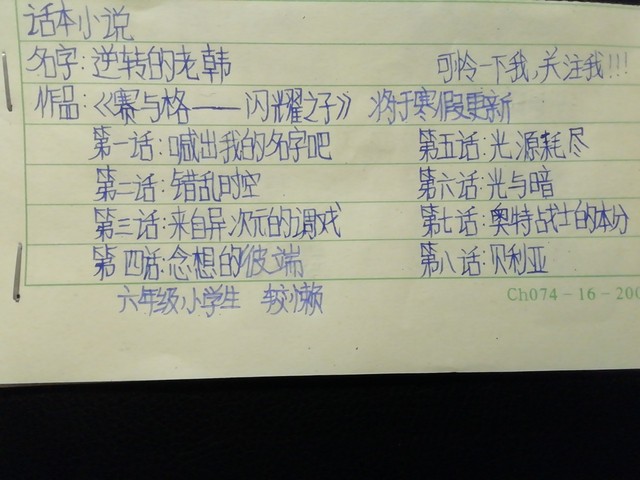 话本小说
名字：逆转的老韩 可怜一下我，关注我!!!
作品：《赛与格——闪耀之子》 将于寒假更新
第一话：喊出我的名字吧 第五话：光源耗尽
第二话：错乱时空 第六话：光与暗
第三话：来自异次元的调戏 第七话：奥特战士的本分
第四话：念想的彼端 第八话：贝利亚
六年级小学生 较懒
Ch074-16-200